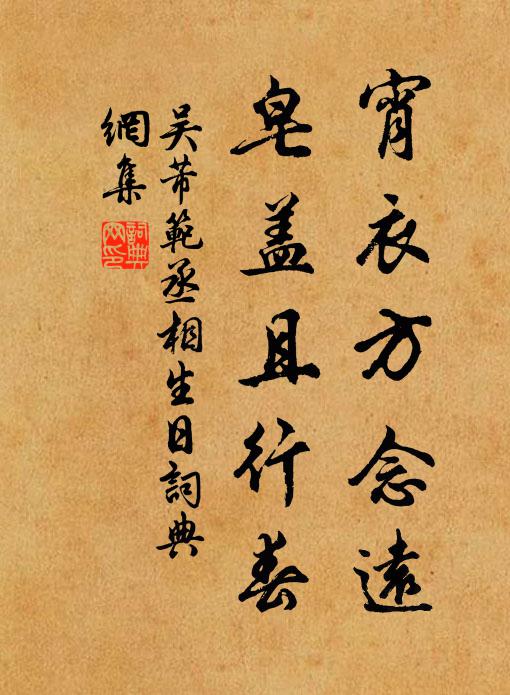 宵衣方念遠
皂蓋且行春
吴芾範丞相生日詞典
網集
詞典
网印